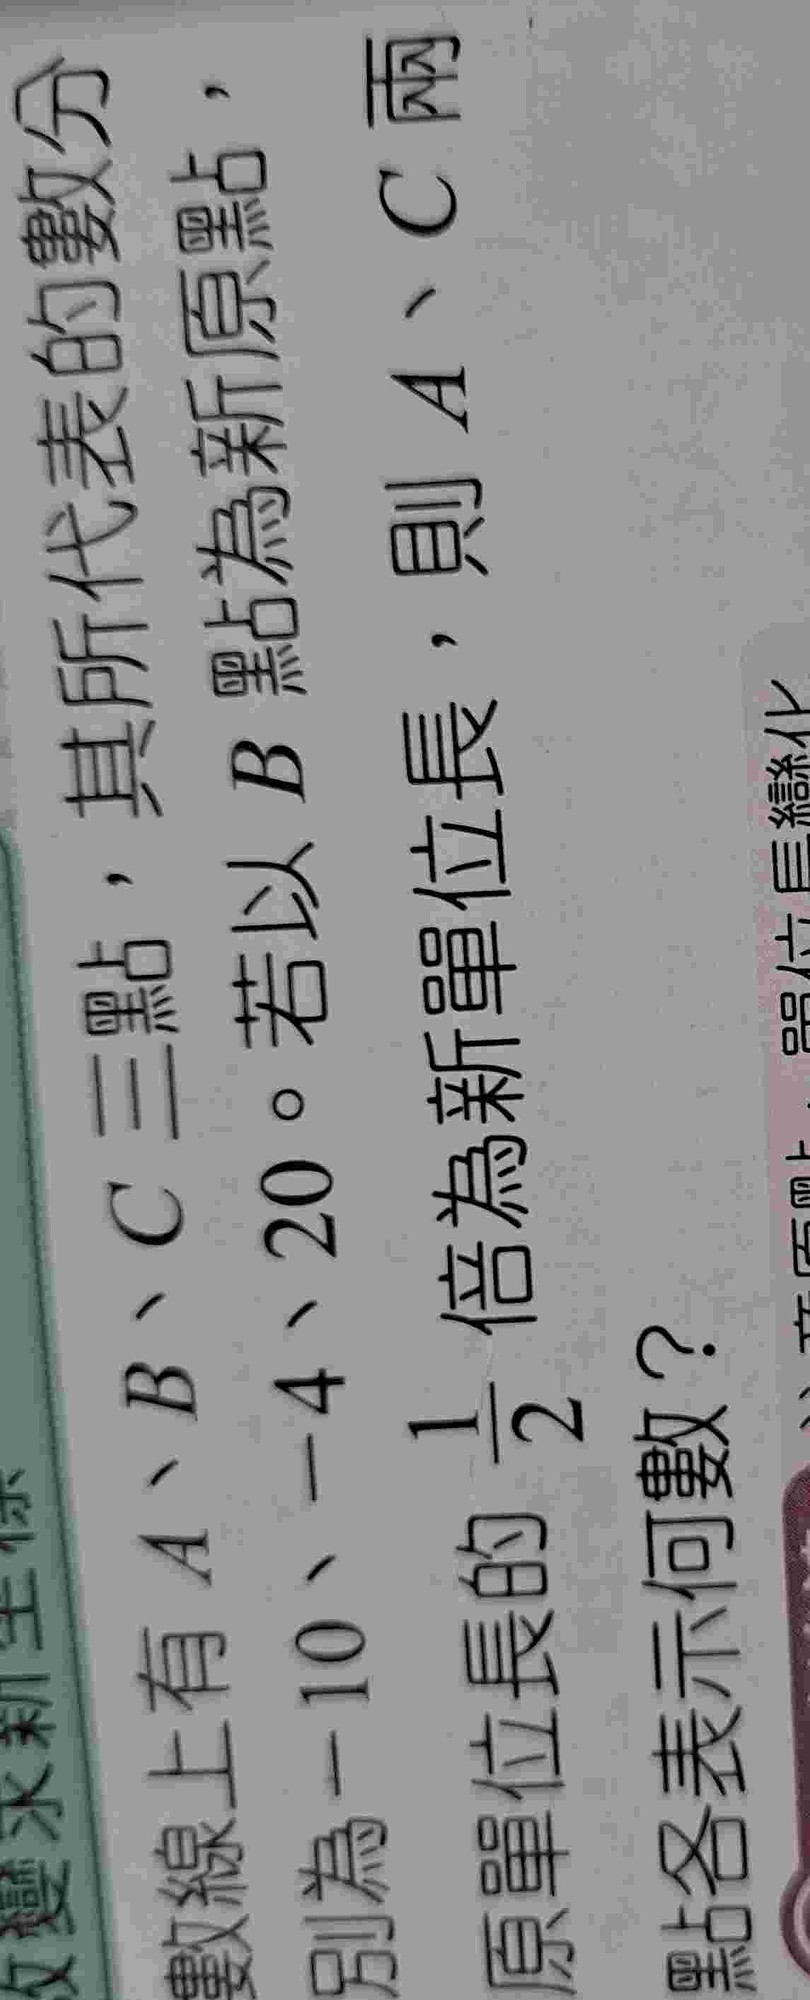 數線上有 A、B、C 三點，其所代表的數分
別為－10、－4、20。若以 B 點為新原點，
原單位長的 1/2 倍為新單位長，則 A、C 兩
點各表示何數？